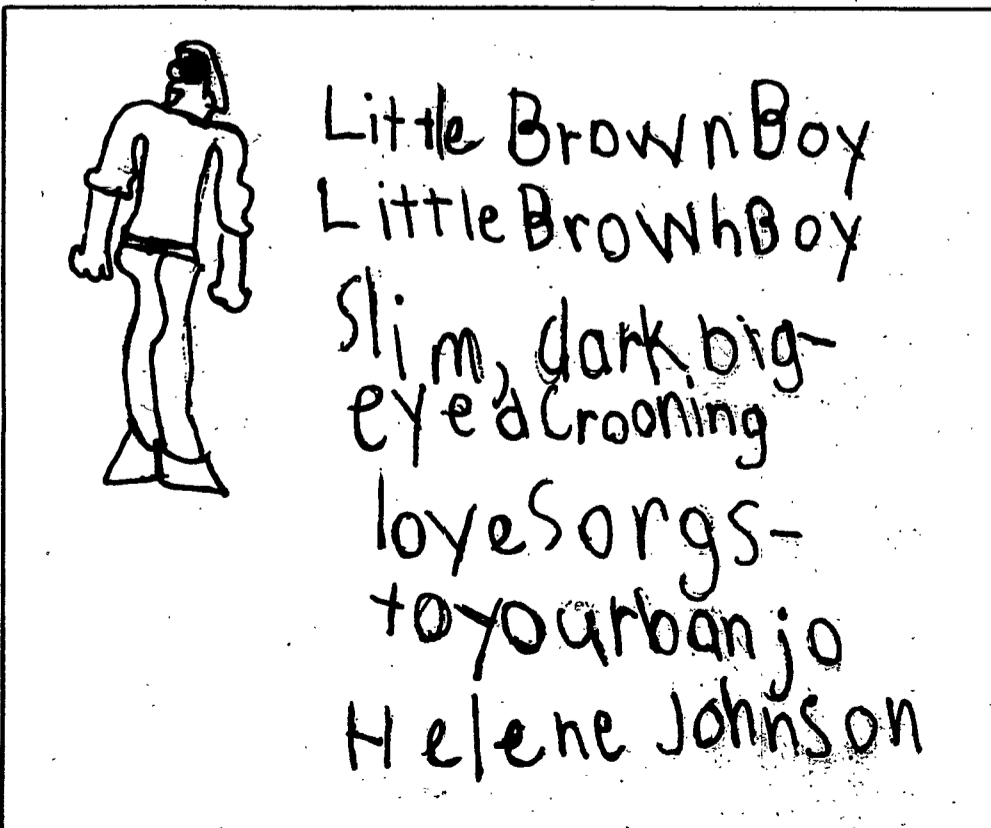 Little Brown Boy
Little Brown Boy
Slim, dark big-
eye'd Crooning
love Sorgs-
to your banjo
Helene Johnson